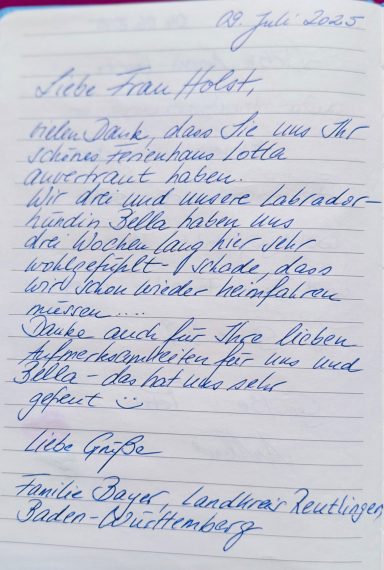 09. Juli 2025
Liebe Frau Holst,
vielen Dank, dass Sie uns Ihr
schönes Ferienhaus Lotta
anvertraut haben.
Wir drei und unsere Labrador-
hündin Bella haben uns
drei Wochen lang hier sehr
wohlgefühlt schade, dass
wir schon wieder heimfahren
müssen ...
Danke auch für Ihre lieben
Aufmerksamkeiten für uns und
Bella - das hat uns sehr
gefreut ☺
Liebe Grüße
Familie Bayer, Landkreis Reutlingen,
Baden-Württemberg